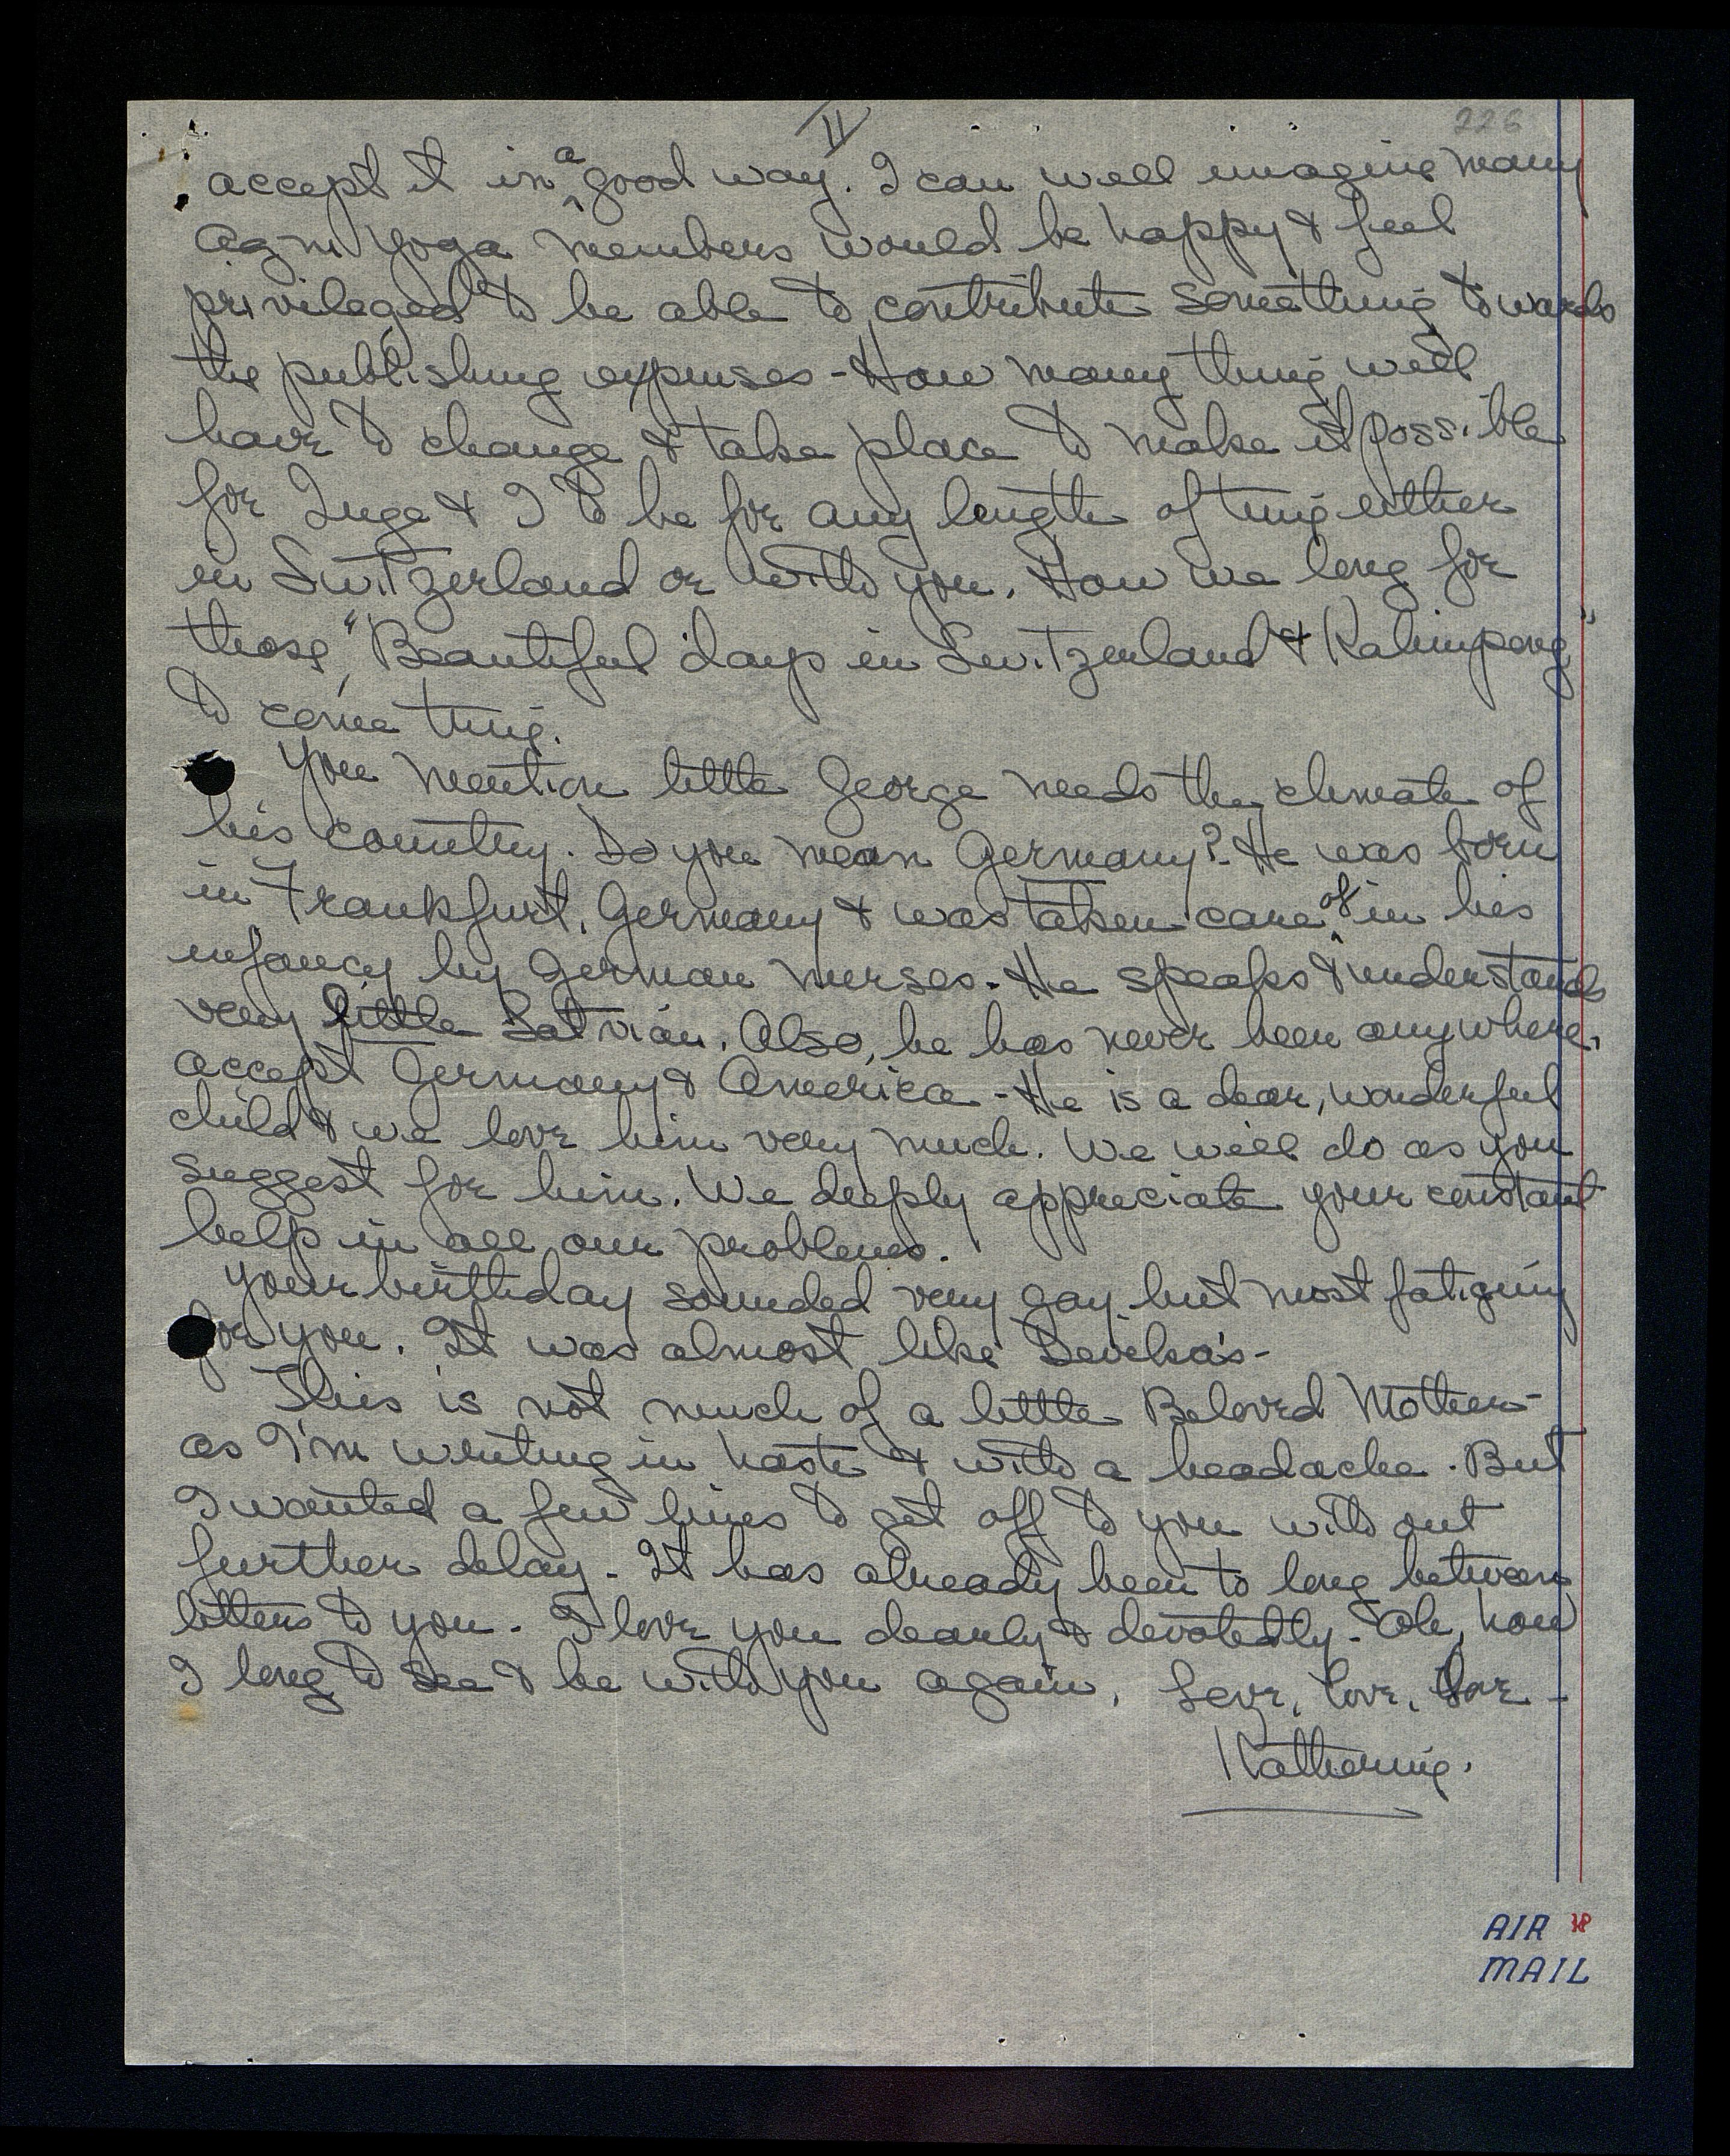 II
226
accept it in a good way. I can well imagine many
Agni Yoga members would be happy & feel
privileged to be able to contribute something towards
the publishing expenses - How many thing will
have to change & take place to make it possible
for Inge & I to be for any length of time either
in Switzerland or with you. How we long for
those, "Beautiful days in Switzerland & Kalimpong"
to come true.
You mention little George needs the climate of
his country. Do you mean Germany? - He was born
in Frankfurt, Germany & was taken care of in his
infancy by German nurses. He speaks & understands
very little Latvian. Also, he has never been anywhere,
accept Germany & America - He is a dear, wonderful
child & we love him very much. We will do as you
suggest for him. We deeply appreciate your constant
help in all our problems.
Your birthday sounded very gay, but most fatiguing
for you. It was almost like Devika's -
This is not much of a little Beloved Mother -
as I'm writing in haste & with a headache. But
I wanted a few lines to get off to you with out
further delay. It has already been to long between
letters to you. I love you dearly & devotedly. Oh, how
I long to see & be with you again. Love, love, love -
Katherine.
AIR
MAIL